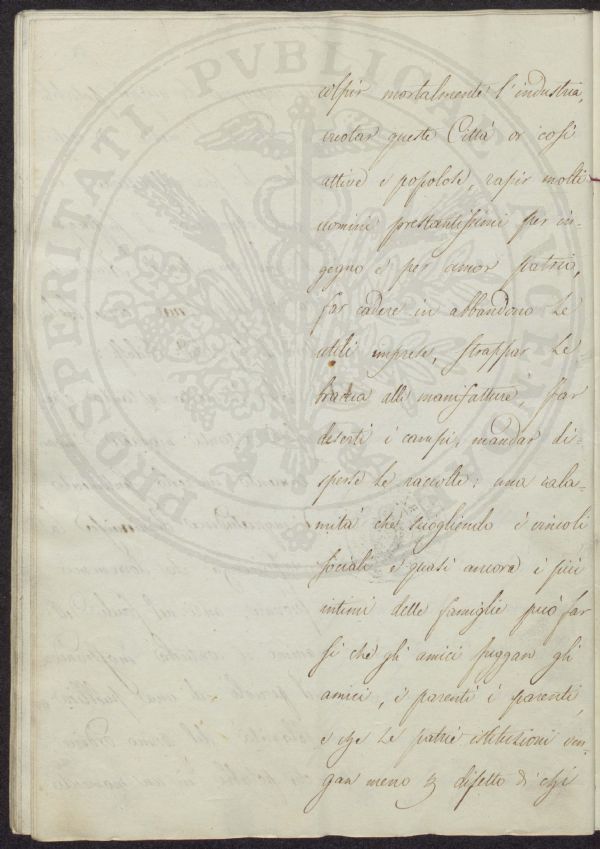 PROSPERITATI PVBLICAE AVGENDAE
colpir mortalmente l'industria,
vuotar queste Città or così
attive e popolose, rapir molti
uomini prestantissimi per in-
gegno e per amor patrio,
far cadere in abbandono le
utili imprese, strappar le
braccia alle manifatture, far
deserti i campi, mandar di-
sperse le raccolte: una cala-
mità che sciogliendo i vincoli
sociali e quasi ancora i più
intimi delle famiglie può far
sì che gli amici fuggan gli
amici, i parenti i parenti,
e che le patrie istituzioni ven-
gan meno per difetto di chi